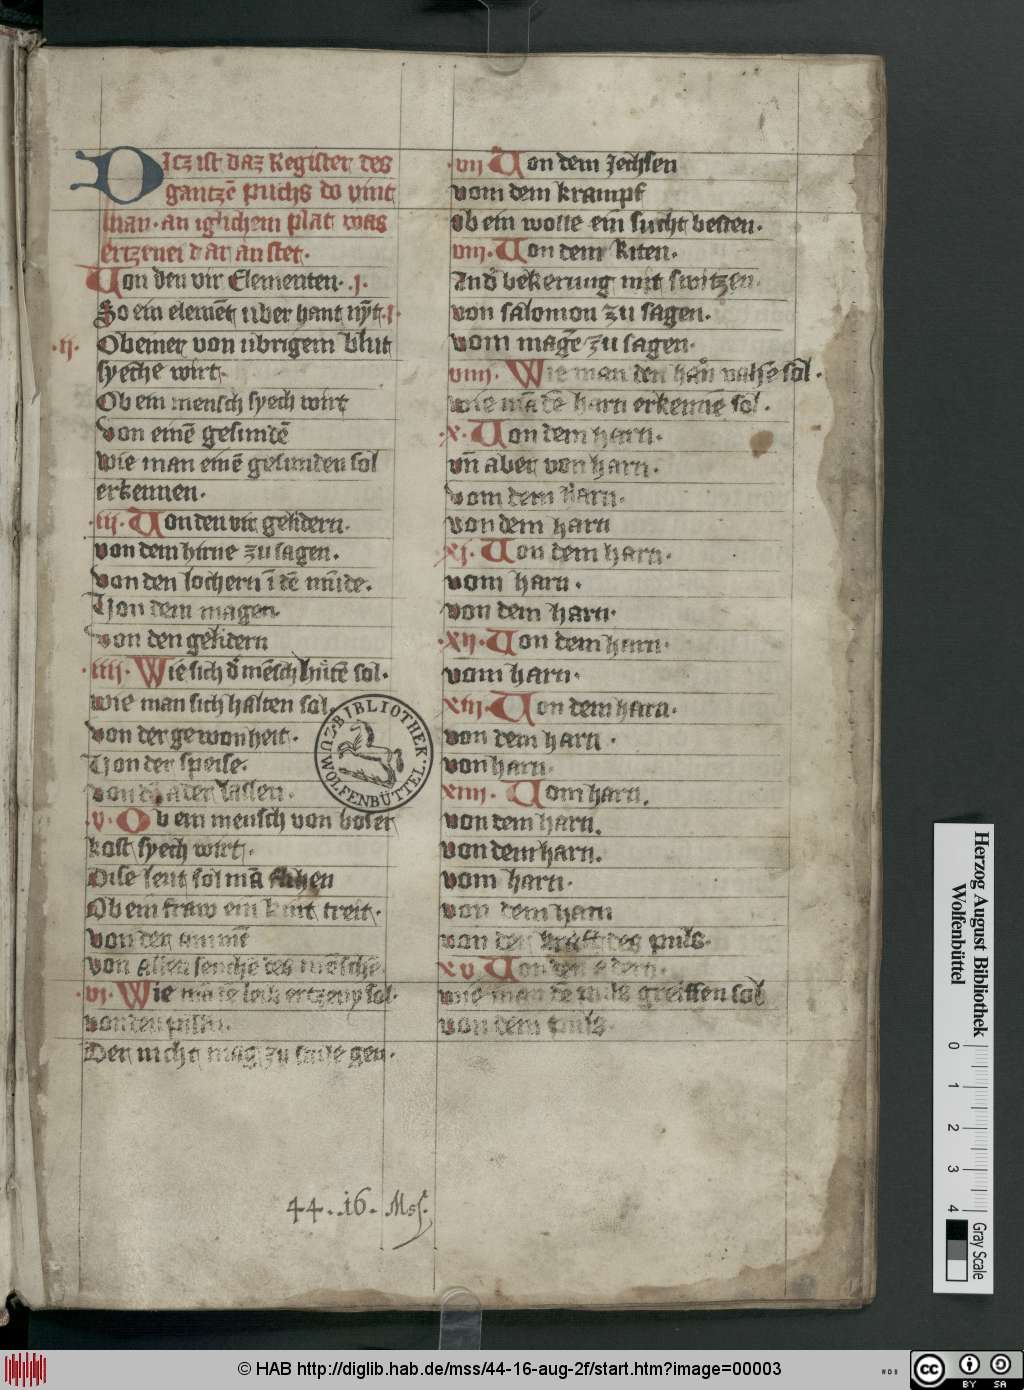 Dicz ist daz Register des
gantzē puchs do vint
man· an iglichem plat was
ertznei dar an stet·
Von den vir Elementen· .j·
So ein elemēt vber hant nȳt·j·
·ij· Ob einer von vbrigem blut
syeche wirt·
Ob ein mensch syech wirt
von einē gesundē
wie man einē gesunden sol
erkennen·
·iij· Von den vir gelidern·
von dem hirne zu sagen·
von den lochern ī dē mūde·
Von dem magen·
von den gelidern
·iiij· Wie sich d' mēsch hütē sol·
wie man sich halten sol·
von der gewonheit·
Von der speise·
von der lassen·
·v· Ob ein mensch von boser
kost syech wirt·
Dise leut sol mā
Ob ein fraw ein kint treit·
von der ammē
von allen seuchē des mēschē
·vi· Wie mā dē leib ertzeny sol·
von den
Der nicht mag zu stule gen·
·vij· Von dem Jechsen
vom dem krampf
ob ein wolle ein sucht besten·
viij· Von dem Riten·
And' bekerung mit switzen·
von salomon zu sagen·
vom magē zu sagen·
viiij· Wie man den harn vahē sol·
wie mā dē harn erkennē sol·
·x· Von dem harn·
vn̄ aber von harn·
vom dem harn·
von dem harn
xj· Von dem harn·
vom harn·
von dem harn·
·xij· Von dem harn·
vom harn·
xiij· Von dem harn·
von dem harn·
von harn·
xiiij· Vom harn·
von dem harn·
von dem harn·
vom harn·
von dem harn
von der kraft des puls·
xv Von den adern·
wie man dē puls greiffen sol
von dem puls·
BIBLIOTHEK
ZU WOLFENBÜTTEL.
44·16· Mss.
Herzog August Bibliothek
Wolfenbüttel
0 1 2 3 4
Gray Scale
© HAB http://diglib.hab.de/mss/44-16-aug-2f/start.htm?image=00003
cc BY SA